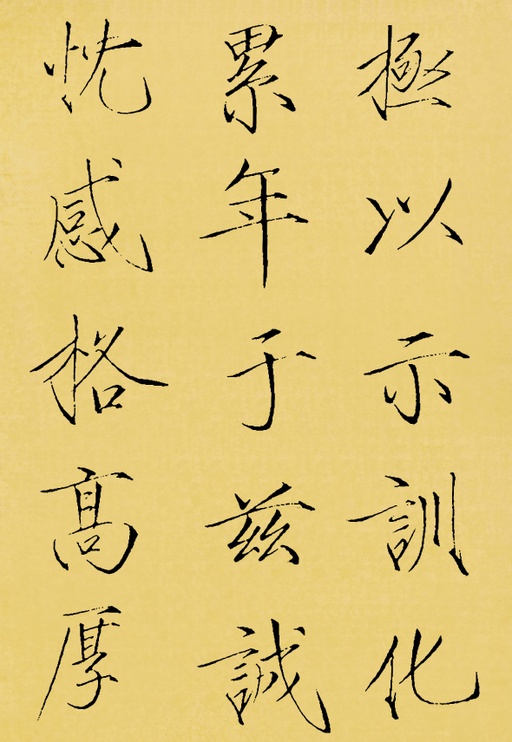 極以示訓化
累年于兹誠
忱感格高厚